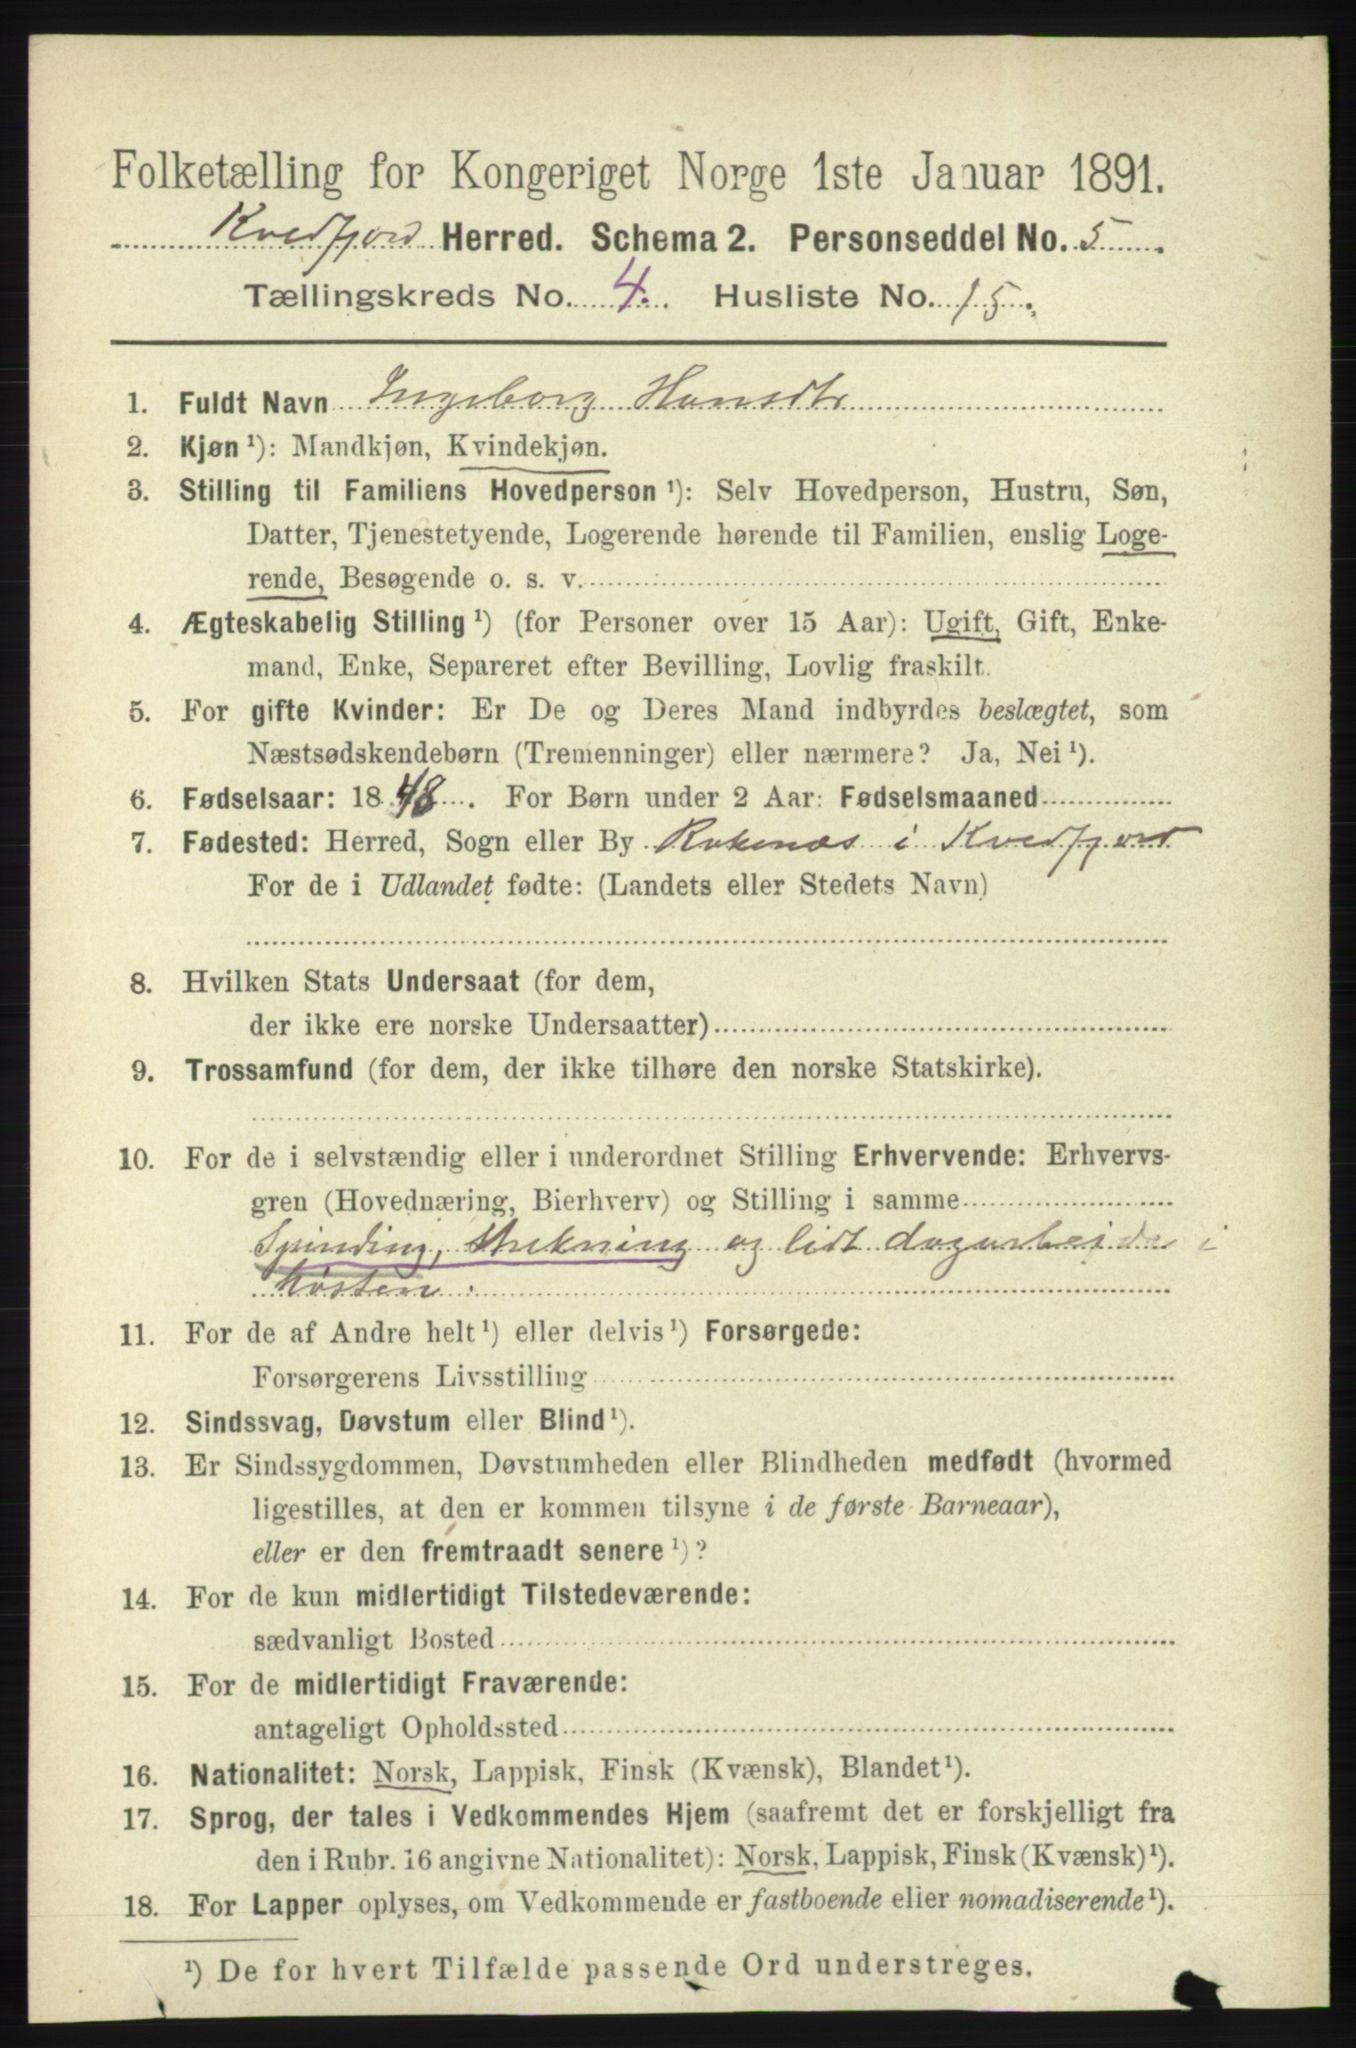 Folketælling for Kongeriget Norge 1ste Januar 1891.
Kvedfjord Herred. Schema 2. Personseddel No. 5
Tællingskreds No. 4. Husliste No. 15.
1. Fuldt Navn Ingeborg Hansdtr
2. Kjøn ¹): Mandkjøn, Kvindekjøn.
3. Stilling til Familiens Hovedperson ¹): Selv Hovedperson, Hustru, Søn,
Datter, Tjenestetyende, Logerende hørende til Familien, enslig Loge-
rende, Besøgende o. s. v.
4. Ægteskabelig Stilling ¹) (for Personer over 15 Aar): Ugift, Gift, Enke-
mand, Enke, Separeret efter Bevilling, Lovlig fraskilt.
5. For gifte Kvinder: Er De og Deres Mand indbyrdes beslægtet, som
Næstsødskendebørn (Tremenninger) eller nærmere? Ja, Nei ¹).
6. Fødselsaar: 1848. For Børn under 2 Aar: Fødselsmaaned
7. Fødested: Herred, Sogn eller By Rokenæs i Kvedfjord
For de i Udlandet fødte: (Landets eller Stedets Navn)
8. Hvilken Stats Undersaat (for dem,
der ikke ere norske Undersaatter)
9. Trossamfund (for dem, der ikke tilhøre den norske Statskirke).
10. For de i selvstændig eller i underordnet Stilling Erhvervende: Erhvervs-
gren (Hovednæring, Bierhverv) og Stilling i samme
Spinding, Strikning og lidt dagarbeide i
høsten.
11. For de af Andre helt ¹) eller delvis ¹) Forsørgede:
Forsørgerens Livsstilling
12. Sindssvag, Døvstum eller Blind ¹).
13. Er Sindssygdommen, Døvstumheden eller Blindheden medfødt (hvormed
ligestilles, at den er kommen tilsyne i de første Barneaar),
eller er den fremtraadt senere ¹)?
14. For de kun midlertidigt Tilstedeværende:
sædvanligt Bosted
15. For de midlertidigt Fraværende:
antageligt Opholdssted
16. Nationalitet: Norsk, Lappisk, Finsk (Kvænsk), Blandet ¹).
17. Sprog, der tales i Vedkommendes Hjem (saafremt det er forskjelligt fra
den i Rubr. 16 angivne Nationalitet): Norsk, Lappisk, Finsk (Kvænsk) ¹).
18. For Lapper oplyses, om Vedkommende er fastboende eller nomadiserende ¹).
¹) De for hvert Tilfælde passende Ord understreges.